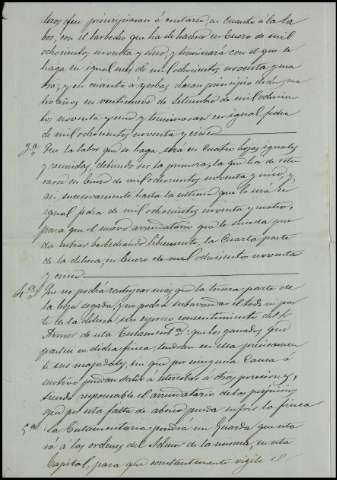 dros que principiarán á contarse, en cuanto á la la-
bor, con el barbecho que ha de hacer en Enero de mil
ochocientos noventa y uno, y terminará con el que se
haga en igual mes de mil ochocientos noventa y
y en cuanto a yerbas darán principio
años en veintinueve de Setiembre de mil ochocien-
tos noventa y uno y terminarán en igual fecha
de mil ochocientos noventa y cinco
3ª. Que la labor que se haga, será en cuatro hojas iguales
y reunidas, debiendo ser la primera, la que ha de
en Enero de mil ochocientos noventa y uno, y
así sucesivamente hasta la última que lo será en
igual fecha de mil ochocientos noventa y cuatro,
para que el nuevo arrendatario que le suceda pue-
da entrar barbechando libremente, la cuarta parte
de la dehesa, en Enero de mil ochocientos noventa
y cinco
4ª. Que no podrá más que la tercera parte de
la hoja segada, ni podrá subarrendar el todo ni par-
te de la dehesa sin expreso consentimiento del Sr.
de esta Testamentaría: que los ganados que
pasten en dicha finca tendrán en ella precisamen-
te sus majadas, sin que por ninguna causa ó
motivo puedan salir á otras posesiones,
siendo responsable el arrendatario de los perjuicios
que por esta falta de abono pueda sufrir la finca
5ª. La Testamentaría pondrá un Guarda que esta-
rá á las ordenes del Señor de la misma, en esta
Capital, para que constantemente vigile el